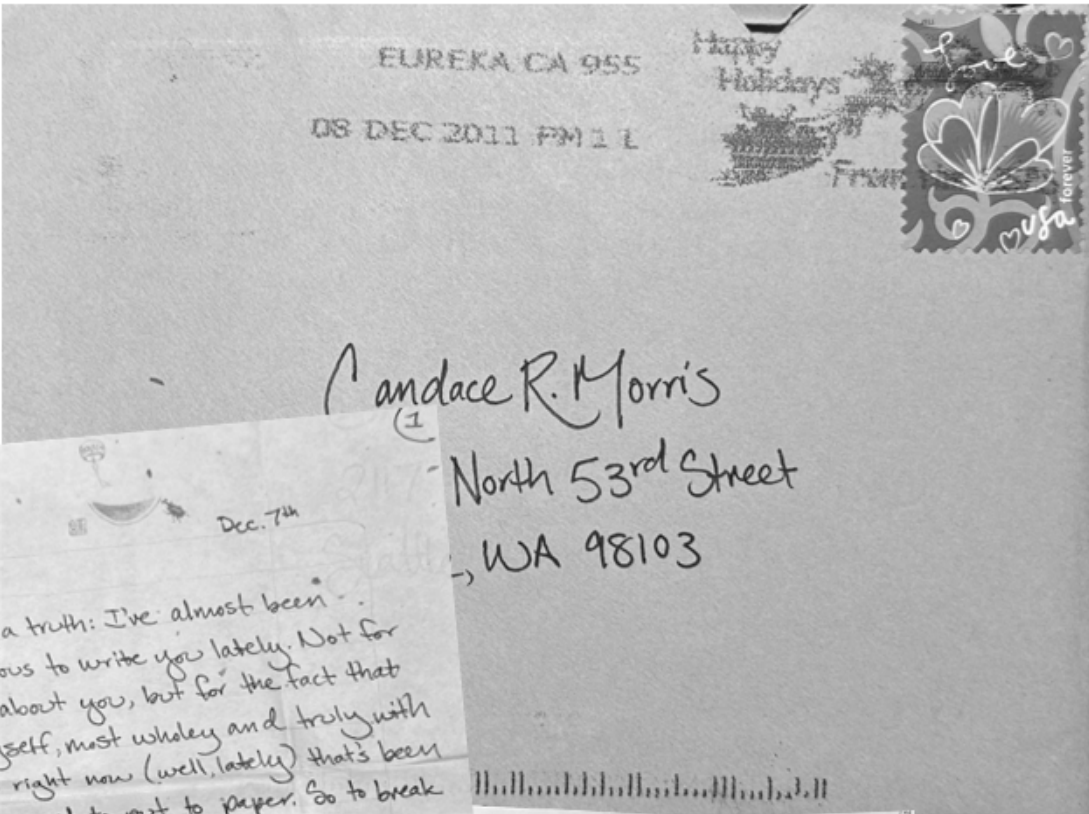 EUREKA CA 955
08 DEC 2011 PM 1 L
Happy
Holidays
From
2011
Love
forever
USA
Candace R. Morris
North 53rd Street
, WA 98103
1
Dec. 7th
a truth: I've almost been
ous to write you lately. Not for
about you, but for the fact that
yself, most wholey and truly with
right now (well, lately) that's been
to paper. So to break